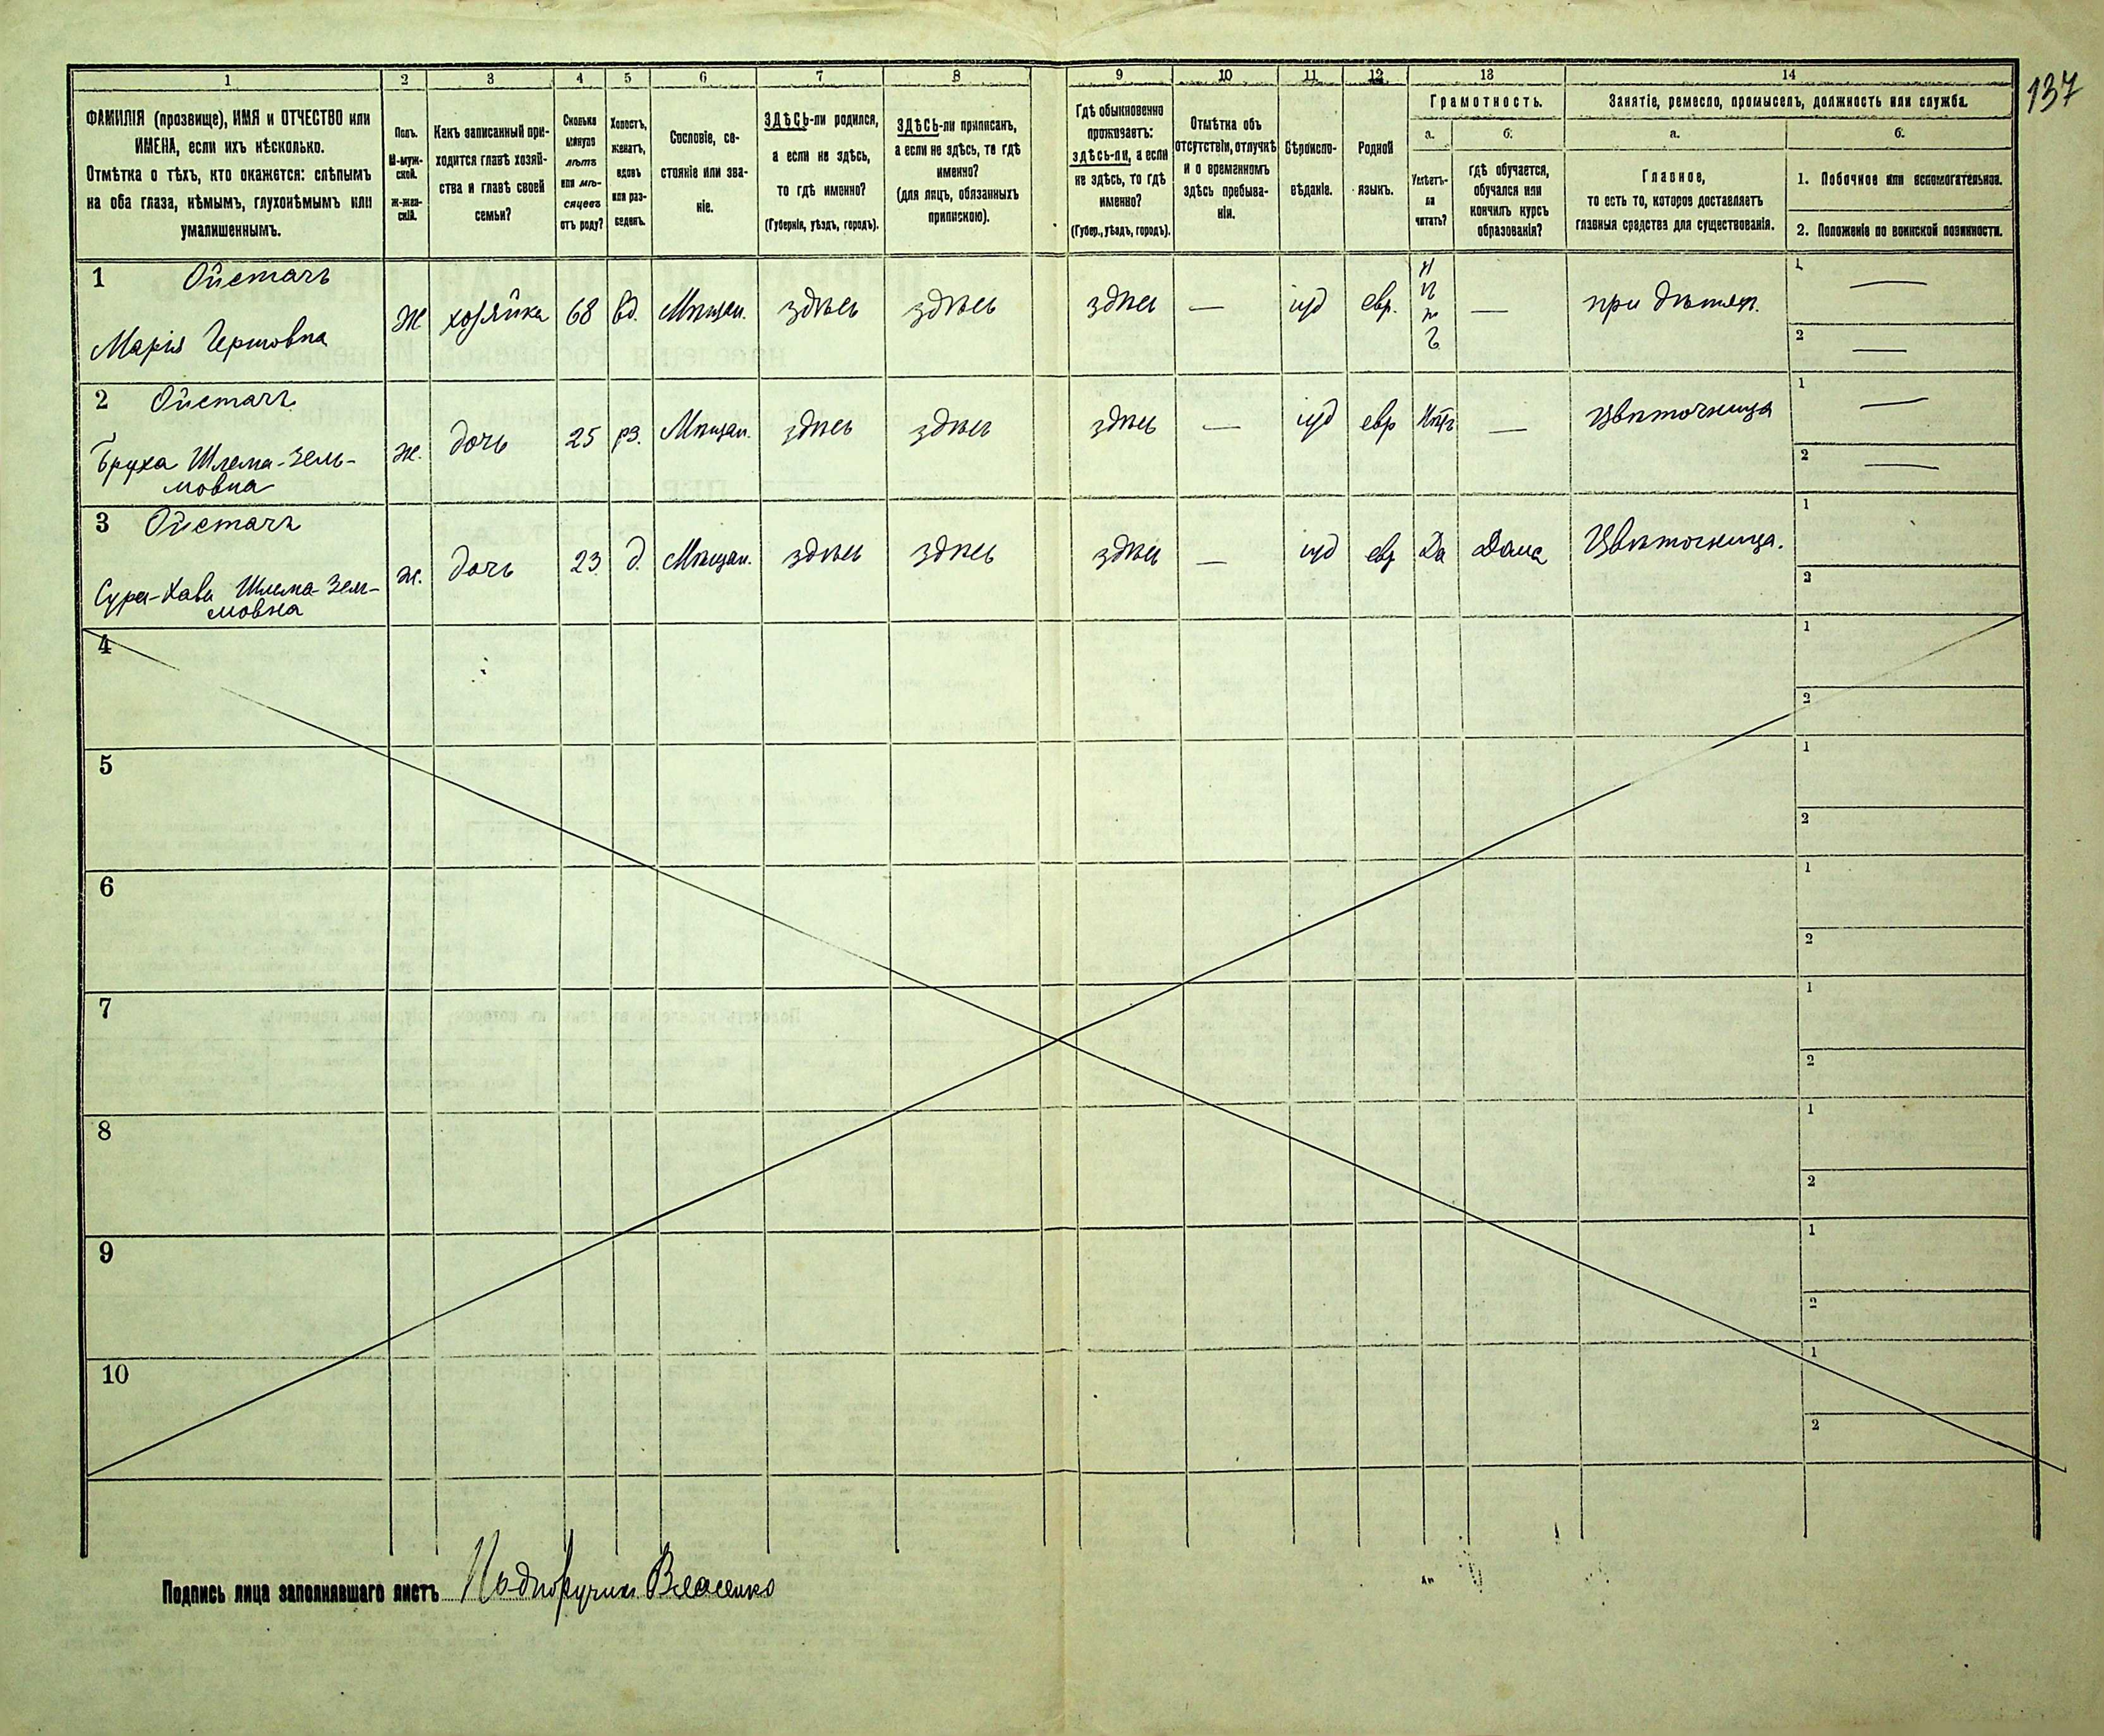 137
1 2 3 4 5 6 7 8 9 10 11 12 13 14
ФАМИЛІЯ (прозвище), ИМЯ и ОТЧЕСТВО или
ИМЕНА, если ихъ нѣсколько.
Отмѣтка о тѣхъ, кто окажется: слѣпымъ
на оба глаза, нѣмымъ, глухонѣмымъ или
умалишеннымъ.
Полъ.
М-муж-
ской.
Ж-жен-
скій.
Какъ записанный при-
ходится главѣ хозяй-
ства и главѣ своей
семьи?
Сколько
минуло
лѣтъ
или мѣ-
сяцевъ
отъ роду?
Холостъ,
женатъ,
вдовъ
или раз-
веденъ.
Сословіе, со-
стояніе или зва-
ніе.
ЗДѢСЬ-ли родился,
а если не здѣсь,
то гдѣ именно?
(Губернія, уѣздъ, городъ).
ЗДѢСЬ-ли приписанъ,
а если не здѣсь, то гдѣ
именно?
(для лицъ, обязанныхъ
припискою).
Гдѣ обыкновенно
проживаетъ:
здѣсь-ли, а если
не здѣсь, то гдѣ
именно?
(Губер., уѣздъ, городъ).
Отмѣтка объ
отсутствіи, отлучкѣ
и о временномъ
здѣсь пребыва-
ніи.
Вѣроиспо-
вѣданіе.
Родной
языкъ.
Грамотность.
а. б.
Умѣетъ-
ли
читать?
Гдѣ обучается,
обучался или
кончилъ курсъ
образованія?
Занятіе, ремесло, промыселъ, должность или служба.
а. б.
Главное,
то есть то, которое доставляетъ
главныя средства для существованія.
1. Побочное или вспомогательное.
2. Положеніе по воинской повинности.
1 Ойстачъ
Марія Гершовна
Ж хозяйка 68 вд. Мѣщан. здѣсь здѣсь здѣсь — іуд евр. Нѣтъ — при дѣтяхъ. 1 — 2 —
2 Ойстачъ
Бруха Шлема-Зель-
мовна
ж. дочь 25 рз. Мѣщан. здѣсь здѣсь здѣсь — іуд евр Нѣтъ — Цвѣточница 1 — 2 —
3 Ойстачъ
Сура-Хава Шлема-Зель-
мовна
ж. дочь 23 д. Мѣщан. здѣсь здѣсь здѣсь — іуд евр Да Дома Цвѣточница. 1 2
4 1 2
5 1 2
6 1 2
7 1 2
8 1 2
9 1 2
10 1 2
Подпись лица заполнявшаго листъ Подпоручикъ Власенко